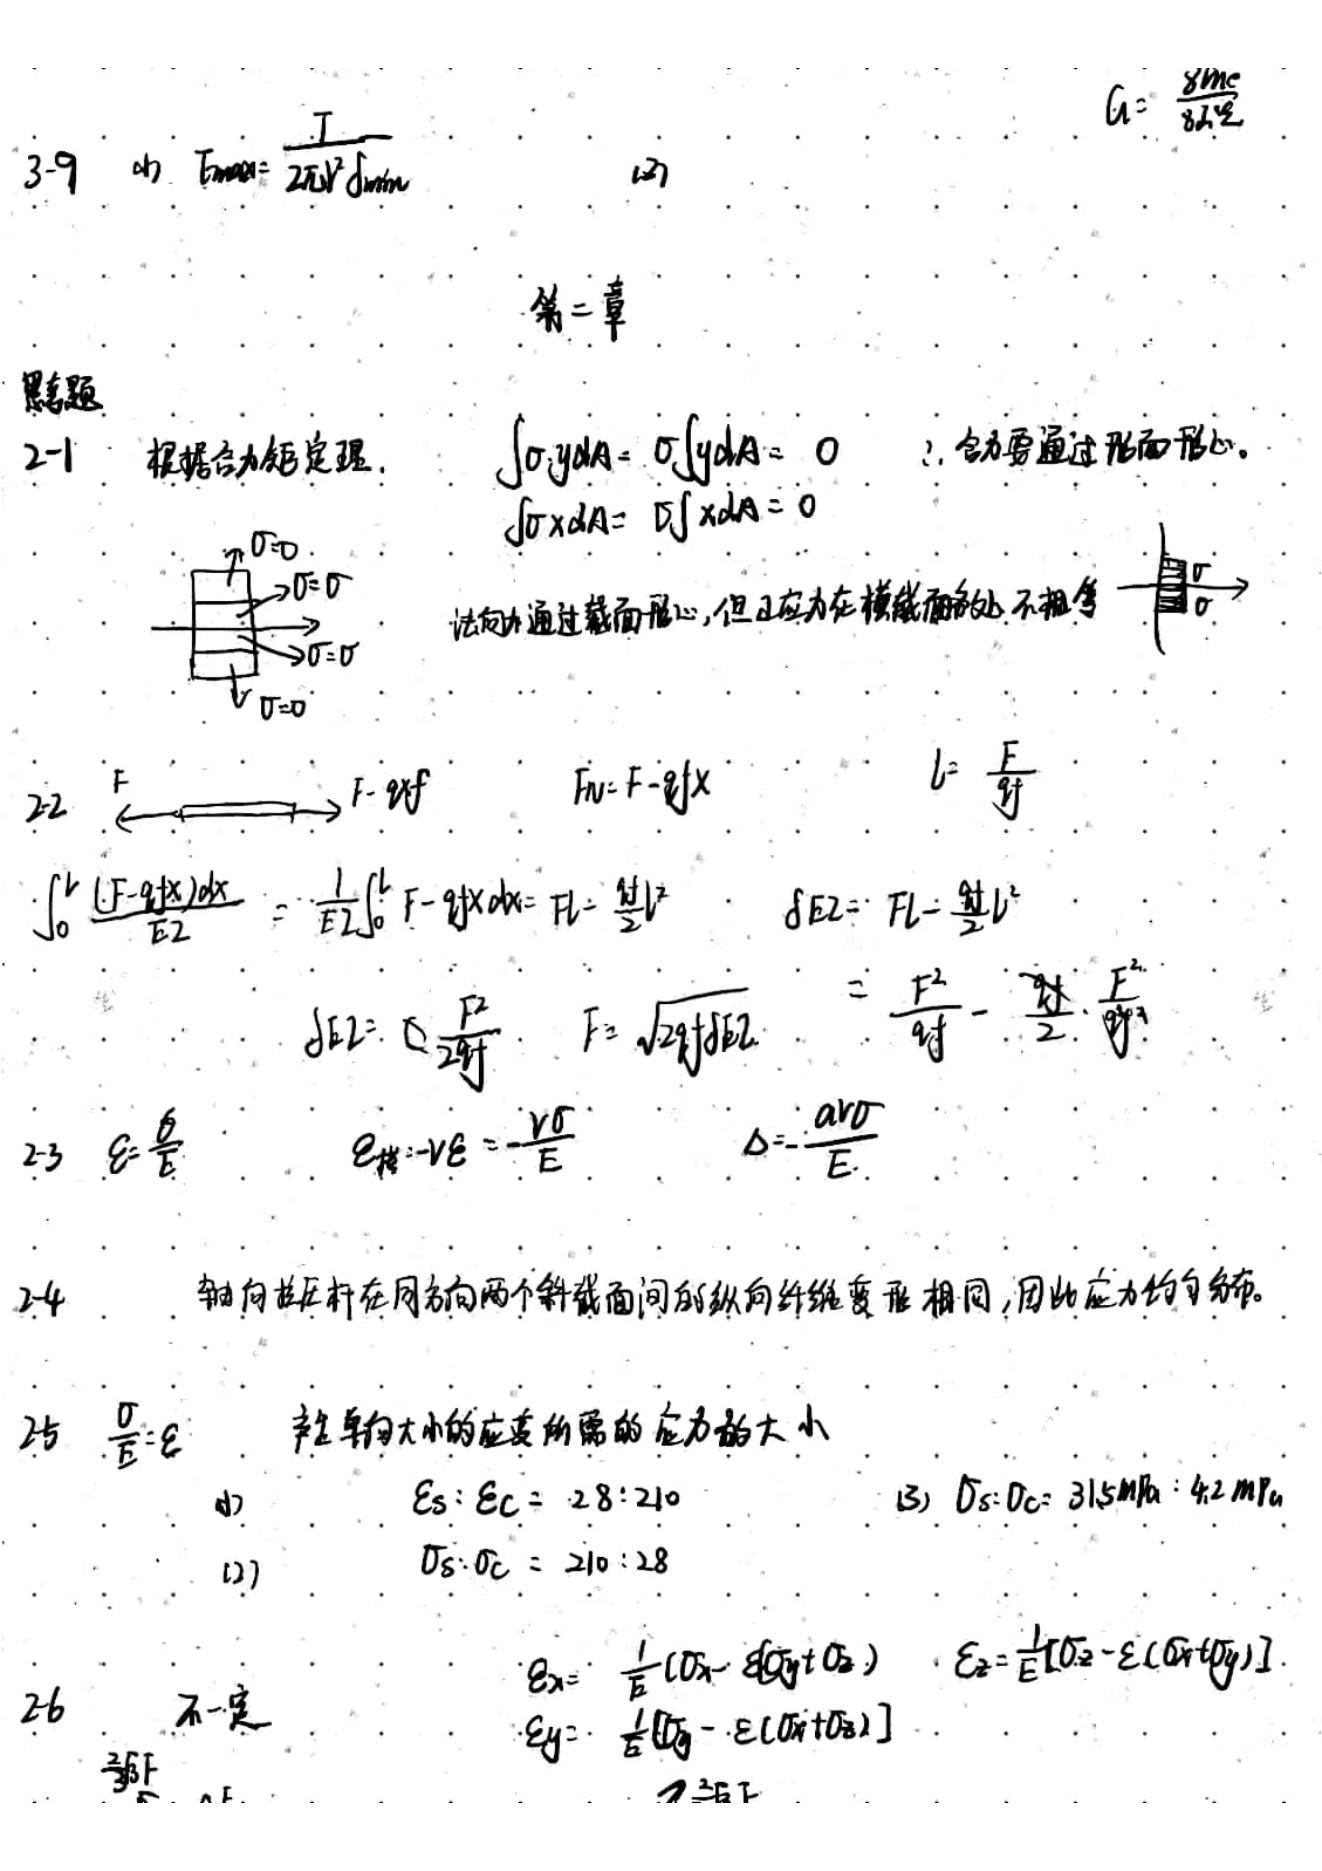 G = 8me / 8𝜋
3-9 (1) τmax = T / 2πr²δmin (2)
第二章
思考题
2-1 根据合力矩定理. ∫σ·ydA = σ∫ydA = 0 ∴ 合力要通过形心。
∫σxdA = σ∫xdA = 0
σ=0
σ=σ
法向力通过截面形心,但正应力在横截面各处不相等
σ
σ
σ=σ
σ=0
2-2 F F-qxf FN = F-qfx l = F / qf
∫₀ˡ (F-qfx)dx / EZ = 1/EZ ∫₀ˡ F-qfxdx = Fl - qf/2 l² δEZ = Fl - qf/2 l²
δEZ = F² / 2qf F = √2qfδEZ = F²/qf - qf/2 · F²/qf²
2-3 ε = σ/E ε横 = -νε = -νσ/E Δ = -aνσ/E
2-4 轴向拉压杆在同方向两个斜截面间的纵向纤维变形相同,因此应力均匀分布。
2-5 σ/E = ε 产生单位大小的应变所需的应力的大小
(1) εs : εc = 28 : 210 (3) σs : σc = 31.5MPa : 4.2MPa
(2) σs : σc = 210 : 28
εx = 1/E (σx - ε(σy+σz) εz = 1/E [σz - ε(σx+σy)]
2-6 不一定
εy = 1/E [σy - ε(σx+σz)]